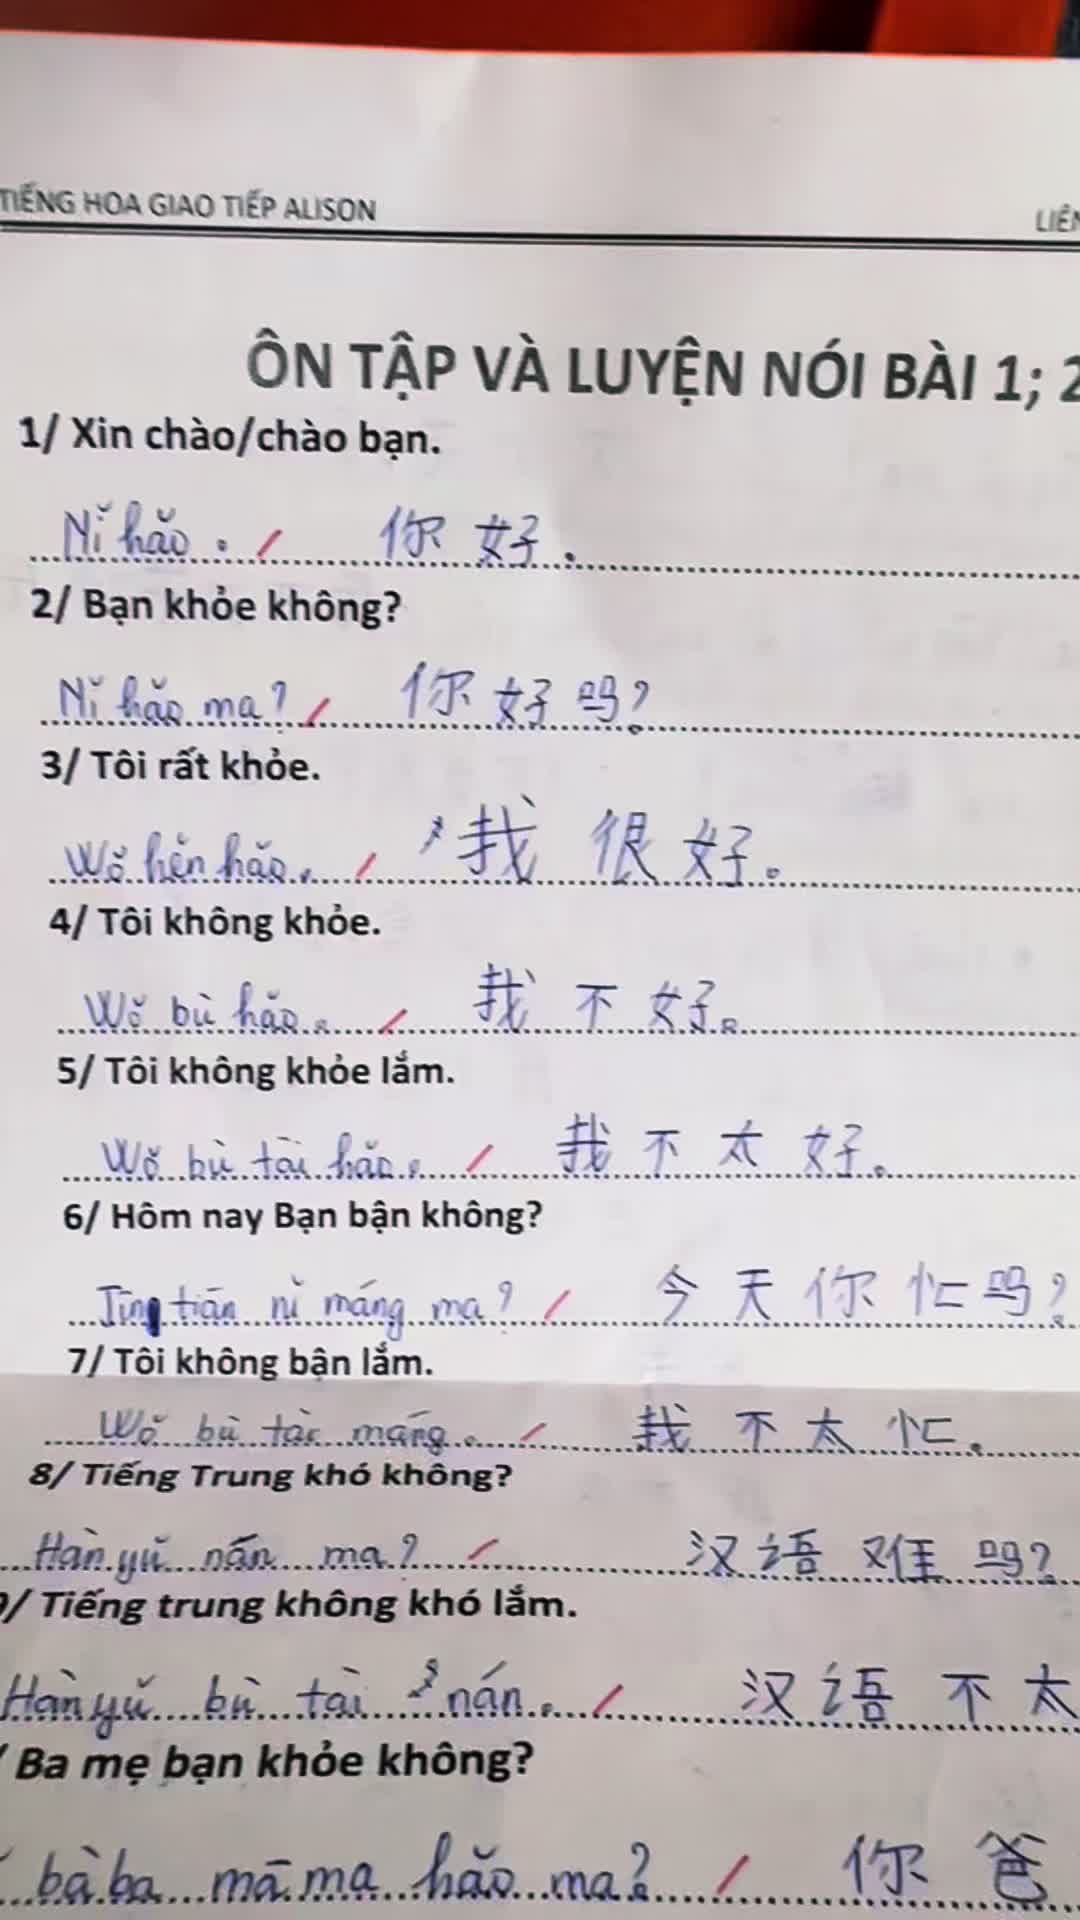 TIẾNG HOA GIAO TIẾP ALISON
ÔN TẬP VÀ LUYỆN NÓI BÀI 1; 2
1/ Xin chào/chào bạn.
Nǐ hǎo. 你好.
2/ Bạn khỏe không?
Nǐ hǎo ma? 你好吗?
3/ Tôi rất khỏe.
Wǒ hěn hǎo. 我很好。
4/ Tôi không khỏe.
Wǒ bù hǎo。 我不好。
5/ Tôi không khỏe lắm.
Wǒ bù tài hǎo. 我不太好。
6/ Hôm nay Bạn bận không?
tiān nǐ máng ma? 今天你忙吗?
7/ Tôi không bận lắm.
Wǒ bù tài máng. 我不太忙.
8/ Tiếng Trung khó không?
Hànyǔ nán ma? 汉语难吗?
/ Tiếng trung không khó lắm.
Hànyǔ bù tài nán. 汉语不太
Ba mẹ bạn khỏe không?
bàba māma hǎo ma? 你爸